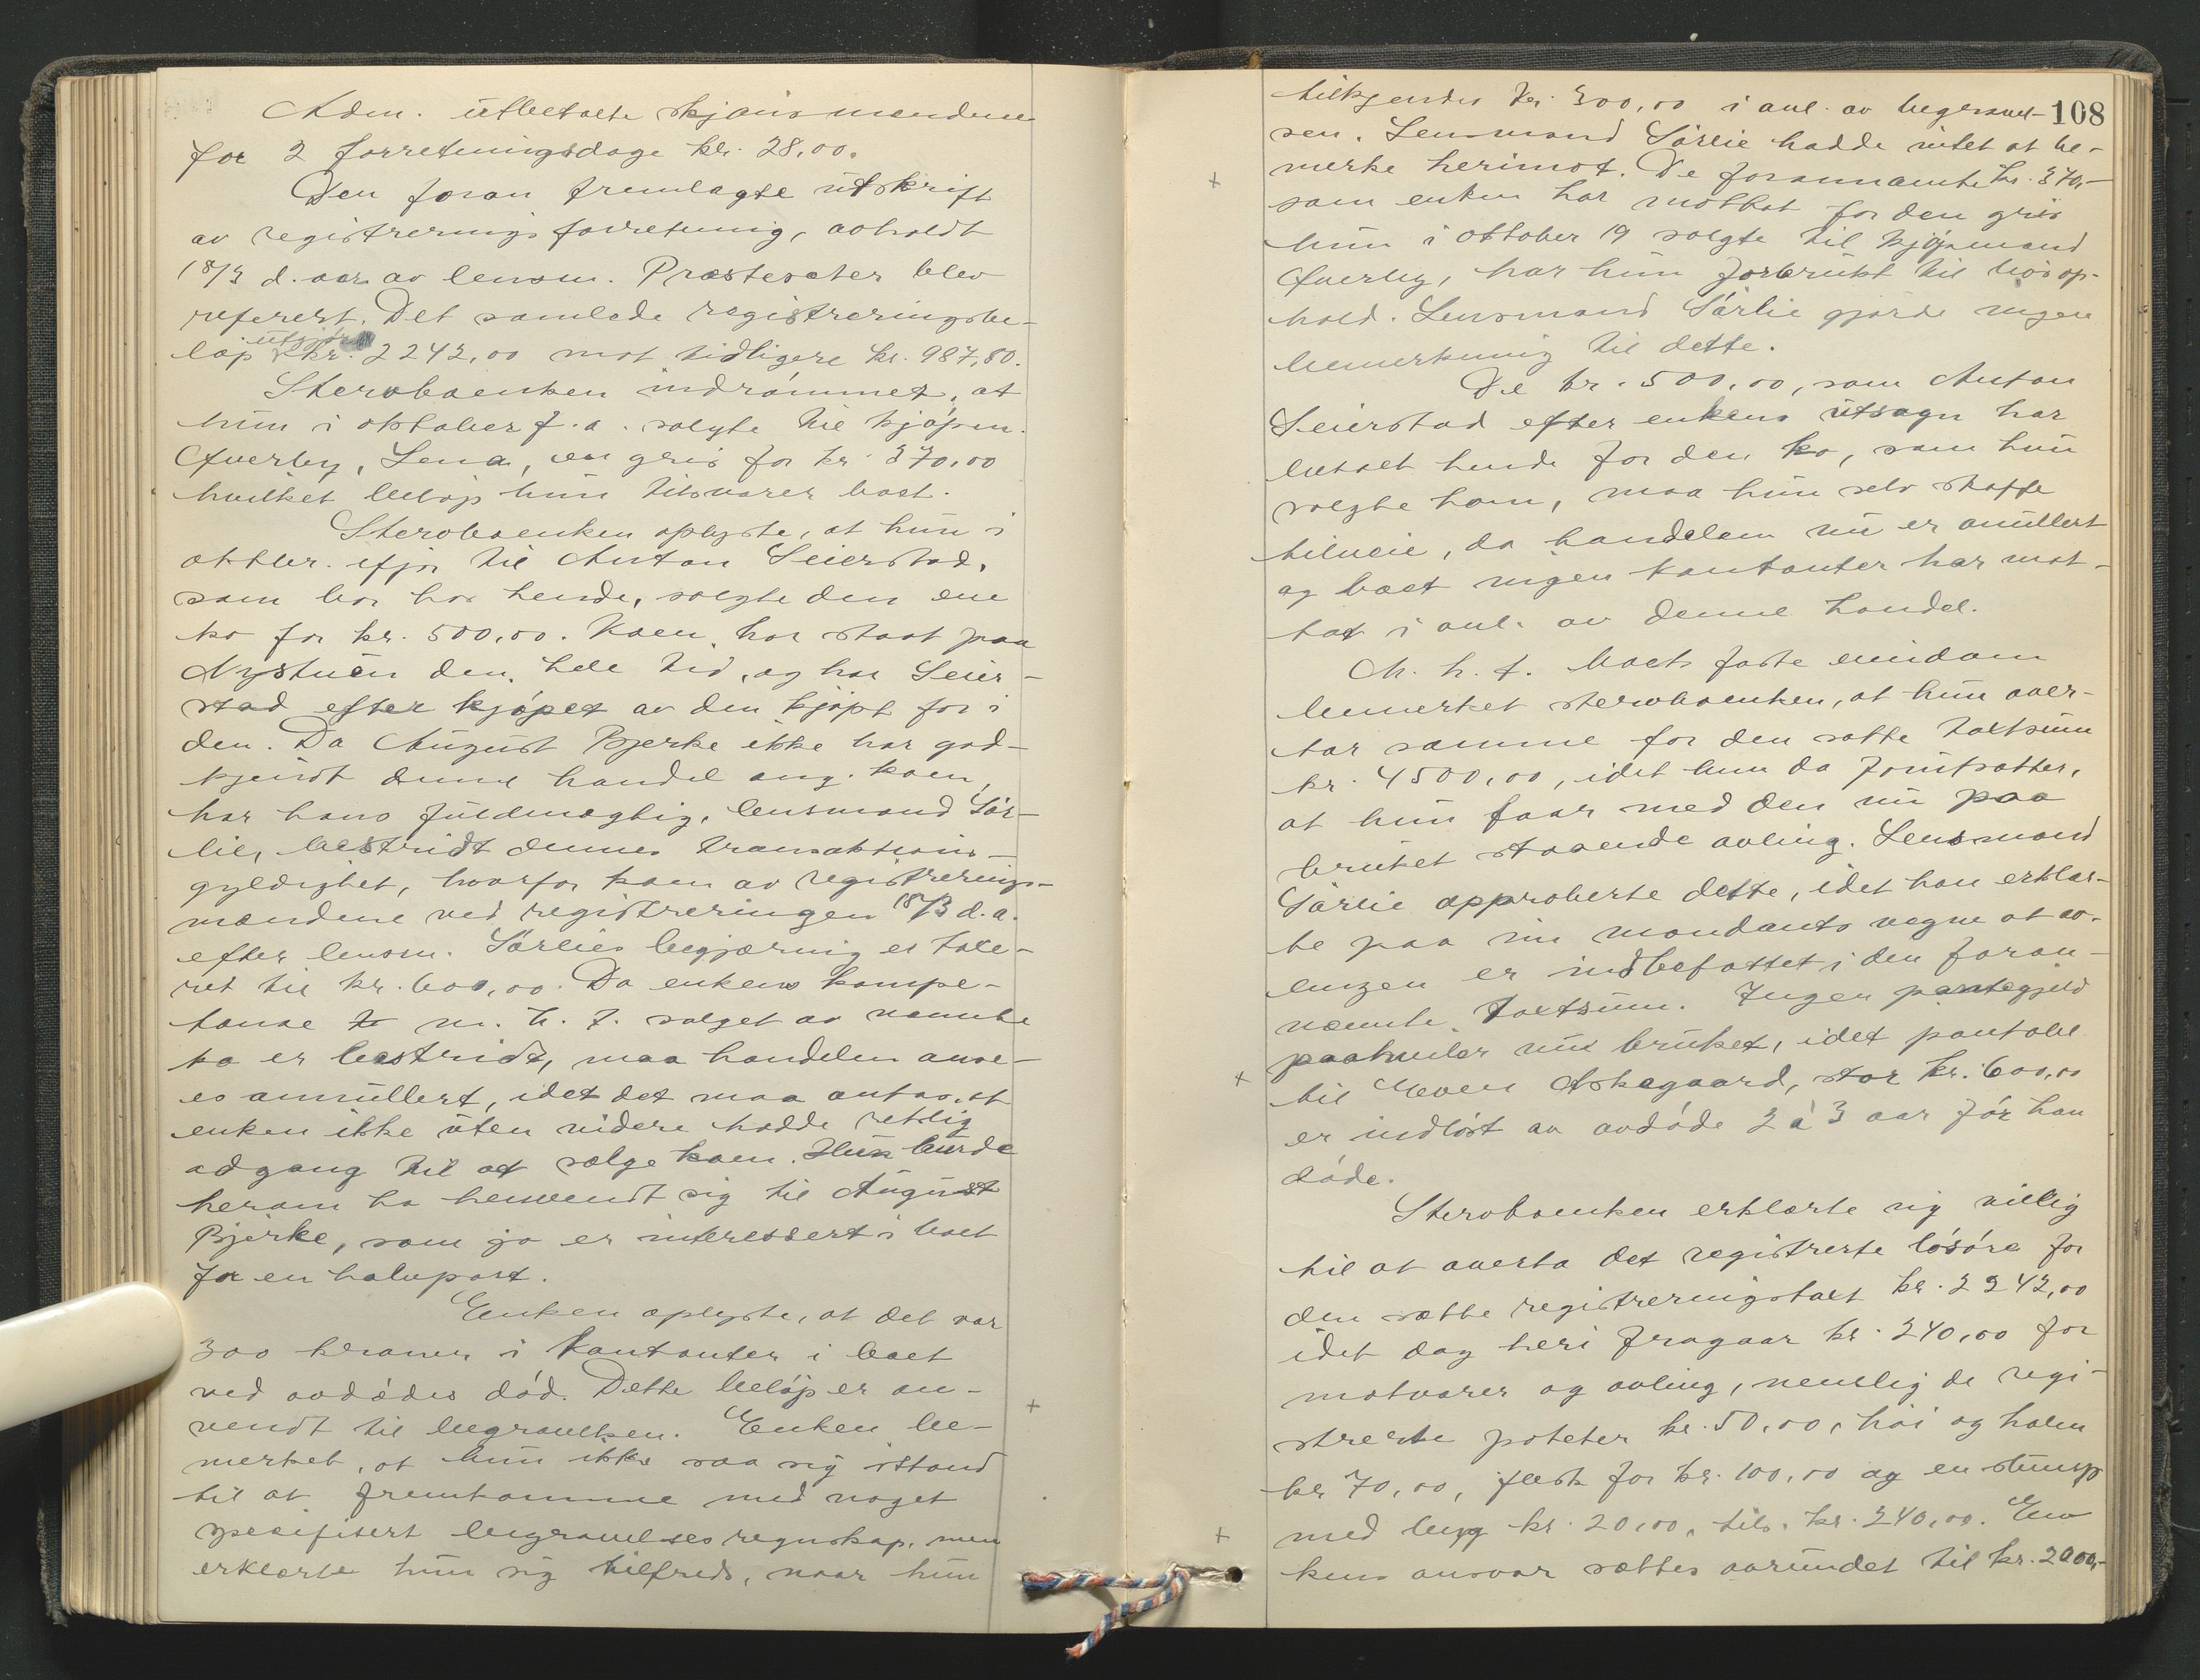 Adm. utbetalte skjønsmændene
for 2 forretningsdage kr. 28,00.
Den foran fremlagte utskrift
av registreringsforretning, avholdt
18/3 d. aar av lensm. Præstesæter blev
referert. Det samlede registreringsbe-
løp utgjør kr. 2242,00 mot tidligere kr. 987,80.
Stervboenken indrømmet, at
hun i oktober f. a. solgte til kjøpm.
Qverby, Lena, en gris for kr. 370,00
hvilket beløp hun tilsvarer boet.
Stervboenken oplyste, at hun i
oktbr. ifjor til Anton Seierstad,
som bor hos hende, solgte den ene
ko for kr. 500,00. Koen har staat paa
Nystuen den hele tid, og har Seier-
stad efter kjøpet av den kjøpt for i
den. Da August Bjerke ikke har god-
kjendt denne handel ang. koen,
har hans fuldmægtig, lensmand Sør-
lie, bestridt dennes transaktions
gyldighet, hvorfor koen av registrerings-
mændene ved registreringen 18/3 d. a.
efter lensm. Sørlies begjæring er takse-
ret til kr. 600,00. Da enkens kompe-
tanse m. h. t. salget av nævnte
ko er bestridt, maa handelen anse-
es annullert, idet det maa antas, at
enken ikke uten videre hadde retslig
adgang til at sælge koen. Hun burde
herom ha henvendt sig til August
Bjerke, som jo er interessert i boet
for en halvpart.
Enken oplyste, at det var
300 kroner i kontanter i boet
ved avdødes død. Dette beløp er an-
vendt til begravelsen. Enken be-
merket, at hun ikke saa sig istand
til at fremkomme med noget
spesifisert begravelsesregnskap, men
erklærte hun sig tilfreds, naar hun
108
tilkjendes kr. 300,00 i anl. av begravel-
sen. Lensmand Sørlie hadde intet at be-
merke herimot. De forannævnte kr. 370,-
som enken har mottat for den gris
hun i oktober 19 solgte til kjøpmand
Qverby, har hun forbrukt til livsop-
hold. Lensmand Sørlie gjorde ingen
bemerkning til dette.
De kr. 500,00, som Anton
Seierstad efter enkens utsagn har
betalt hende for den ko, som hun
solgte ham, maa hun selv skaffe
tilveie, da handelen nu er anullert
og boet ingen kontanter har mot-
tat i anl. av denne handel.
M. h. t. boets faste eiendom
bemerket stervboenken, at hun over-
tar samme for den satte takstsum
kr. 4500,00, idet hun da forutsætter,
at hun faar med den nu paa
bruket staaende avling. Lensmand
Sørlie approberte dette, idet han erklær-
te paa sin mandants vegne at av-
lingen er indbefattet i den foran-
nævnte takstsum. Ingen pantegjeld
paahviler nu bruket, idet pantobl.
til Even Askegaard, stor kr. 600,00
er indløst av avdøde 2 à 3 aar før han
døde.
Stervboenken erklærte sig villig
til at overta det registrerte løsøre for
den satte registreringstakst kr. 2242,00
idet dog heri fragaar kr. 240,00 for
matvarer og avling, nemlig de regi-
strerte poteter kr. 50,00, høi og halm
kr. 70,00, flesk for kr. 100,00 og en slump
med bygg kr. 20,00, tils. kr. 240,00. En-
kens ansvar sættes avrundet til kr. 2000,-